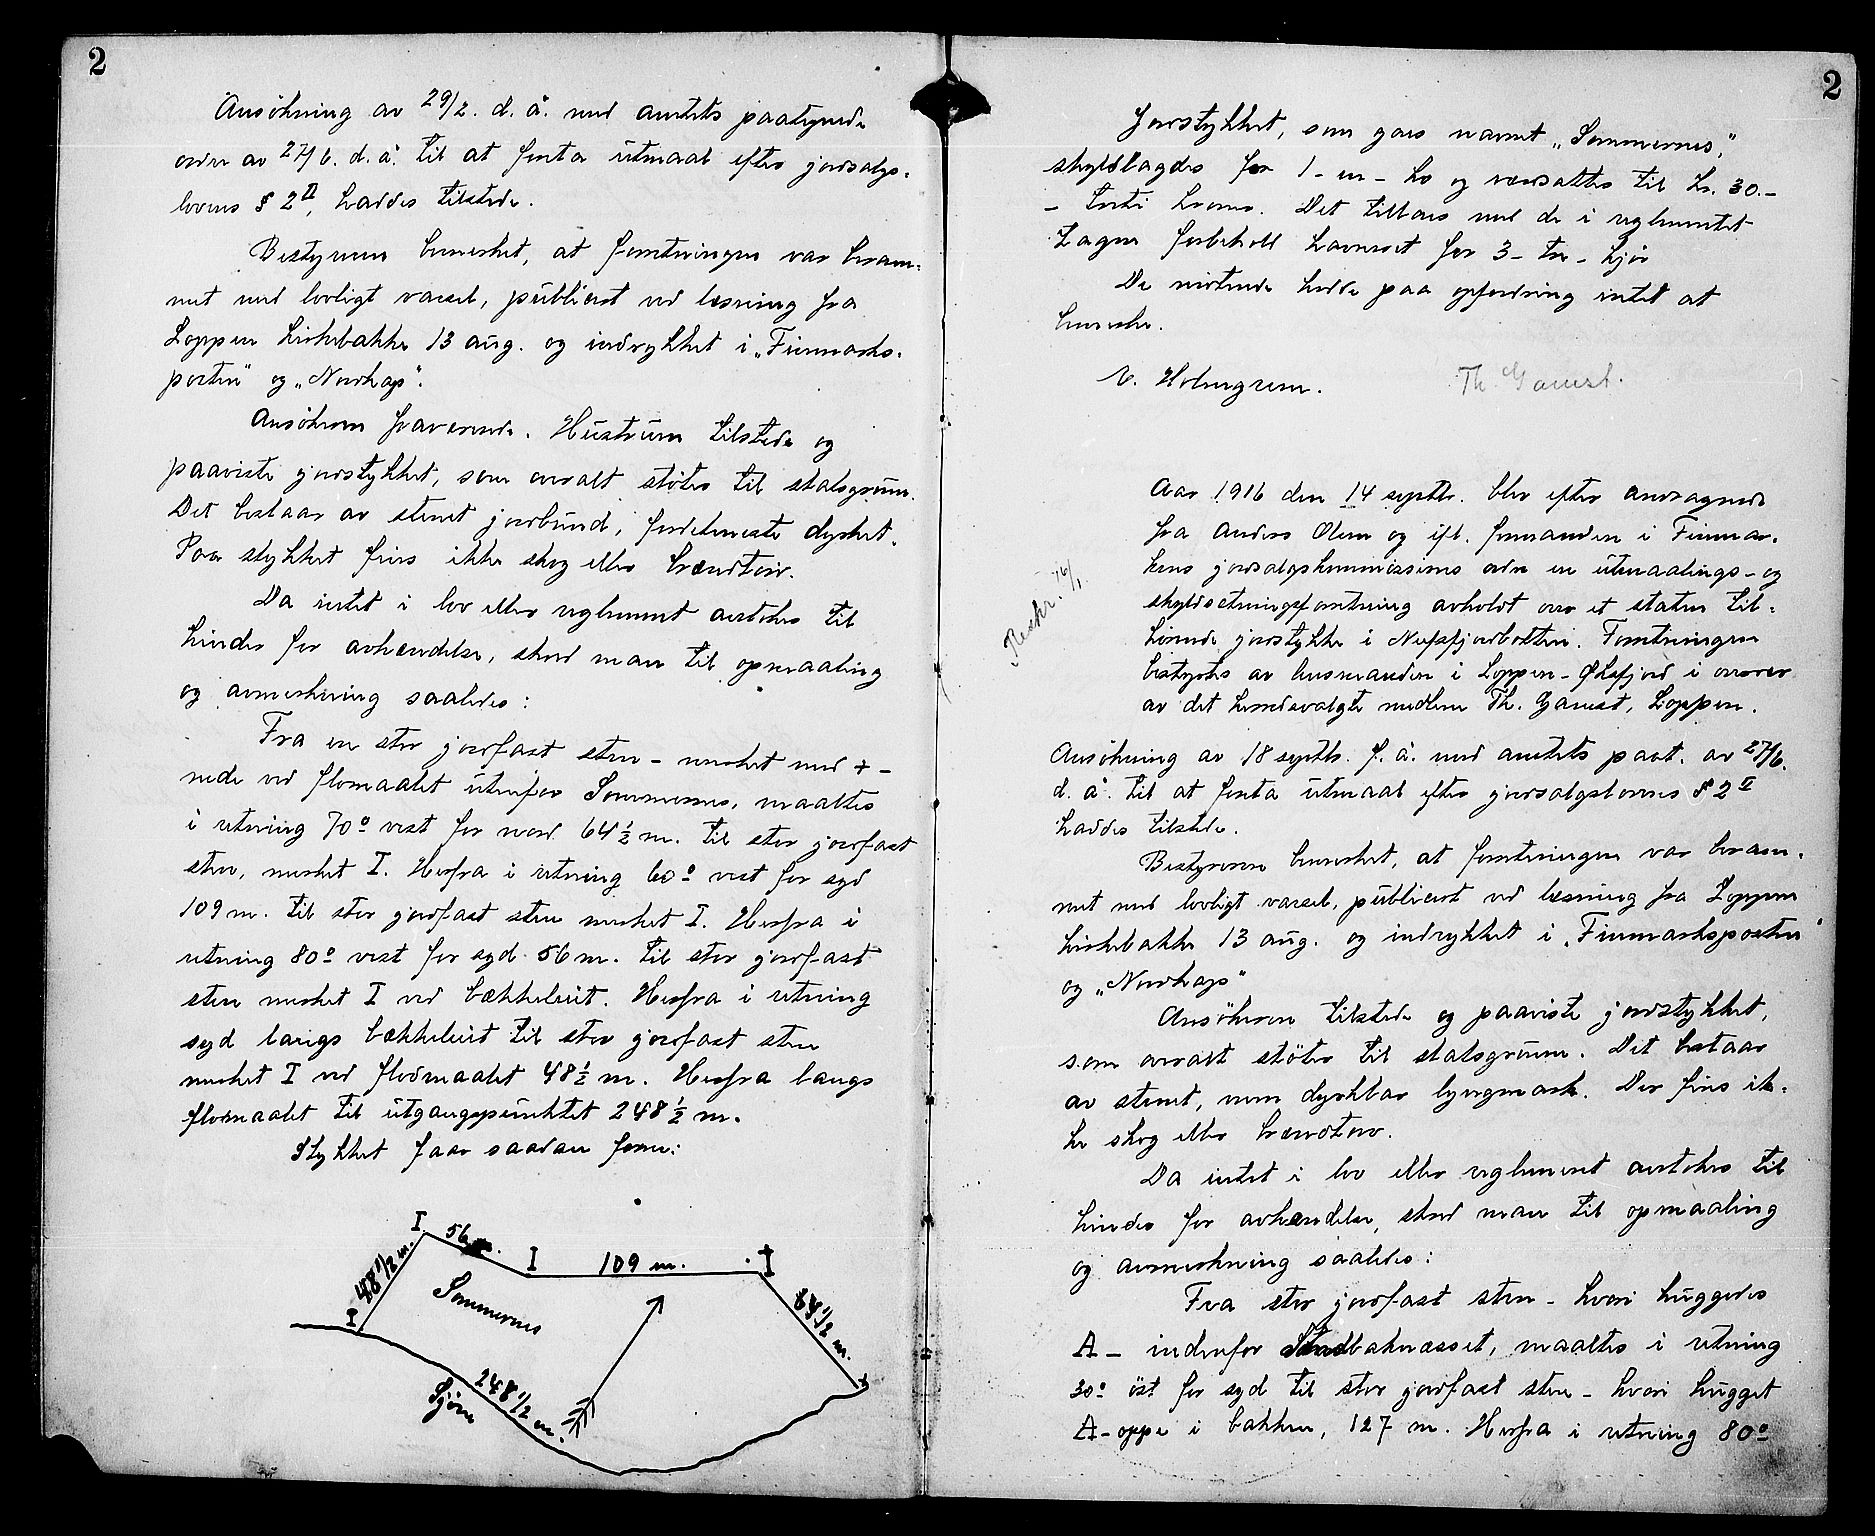 2
Ansökning av 29/2. d. å. med amtets paategnede
ordre av 27/6. d. å. til at foreta utmaal efter jordsalgs-
lovens § 2 II, haddes tilstede.
Bestyreren bemerket, at forretningen var beram-
met med lovligt varsel, publicert ved læsning fra
Loppen kirkebakke 13 aug. og indrykket i „Finmarks-
posten" og „Nordkap".
Ansökeren fraværende. Hustruen tilstede og
paaviste jordstykket, som overalt stöter til statsgrunn.
Det bestaar av stenet jordbund, fordetmeste dyrket.
Paa stykket fins ikke skog eller brændtorv.
Da intet i lov eller reglement antokes til
hinder for avhændelse, skred man til opmaaling
og avmerkning saaledes:
Fra en stor jordfast sten - merket med + -
nede ved flomaalet utenfor Sommernes, maaltes
i retning 70° vest for nord 64 1/2 m. til stor jordfast
sten, merket I. Herfra i retning 60° vest for syd
109 m. til stor jordfast sten merket I. Herfra i
retning 80° vest for syd 56 m. til stor jordfast
sten merket I ved bækkeleiet. Herfra i retning
syd langs bækkeleiet til stor jordfast sten
merket I ved flodmaalet 48 1/2 m. Herfra langs
flomaalet til utgangspunktet 248 1/2 m.
Stykket faar saadan form:
I 56 m. I 109 m. I
48 1/2 m.
Sommernes
64 1/2 m.
I
248 1/2 m.
Sjøen
+
2
Jordstykket, som gaes navnet „Sommernes",
skyldlagdes for 1 - en - øre og værsattes til kr. 30.-
- tretti kroner. Det tillaes med de i reglementet
tagne forbehold havneret for 3 - tre - kjør
De møtende hadde paa opfordring intet at
bemerke.
V. Holmgren. Th. Gamst.
Aar 1916 den 14 septbr. blev efter andragende
fra Anders Olsen og ifl. formanden i Finmar-
kens jordsalgskommissions ordre en utmaalings- og
skyldsetningsforretning avholdt over et staten til-
hörende jordstykke i Nufsfjordbotten. Forretningen
bestyrtes av lensmanden i Loppen - Øksfjord i nærvær
av det herredsvalgte medlem Th. Gamst, Loppen.
Beskr. 16/1
Ansökning av 18 septbr. f. å. med amtets paat. av 27/6.
d. å. til at foreta utmaal efter jordsalgslovens § 2 II
haddes tilstede.
Bestyreren bemerket, at forretningen var beram-
met med lovligt varsel, publicert ved læsning fra Loppen
kirkebakke 13 aug. og indrykket i „Finmarksposten"
og „Nordkap"
Ansökeren tilstede og paaviste jordstykket,
som overalt stöter til statsgrunn. Det bestaar
av stenet, men dyrkbar lyngmark. Der fins ik-
ke skog eller brændtorv.
Da intet i lov eller reglement antokes til
hinder for avhændelse, skred man til opmaaling
og avmerkning saaledes:
Fra stor jordfast sten - hvori huggedes
A - indenfor Strandbaknæsset, maaltes i retning
30° öst for syd til stor jordfast sten - hvori hugget
A - oppe i bakken, 127 m. Herfra i retning 80°